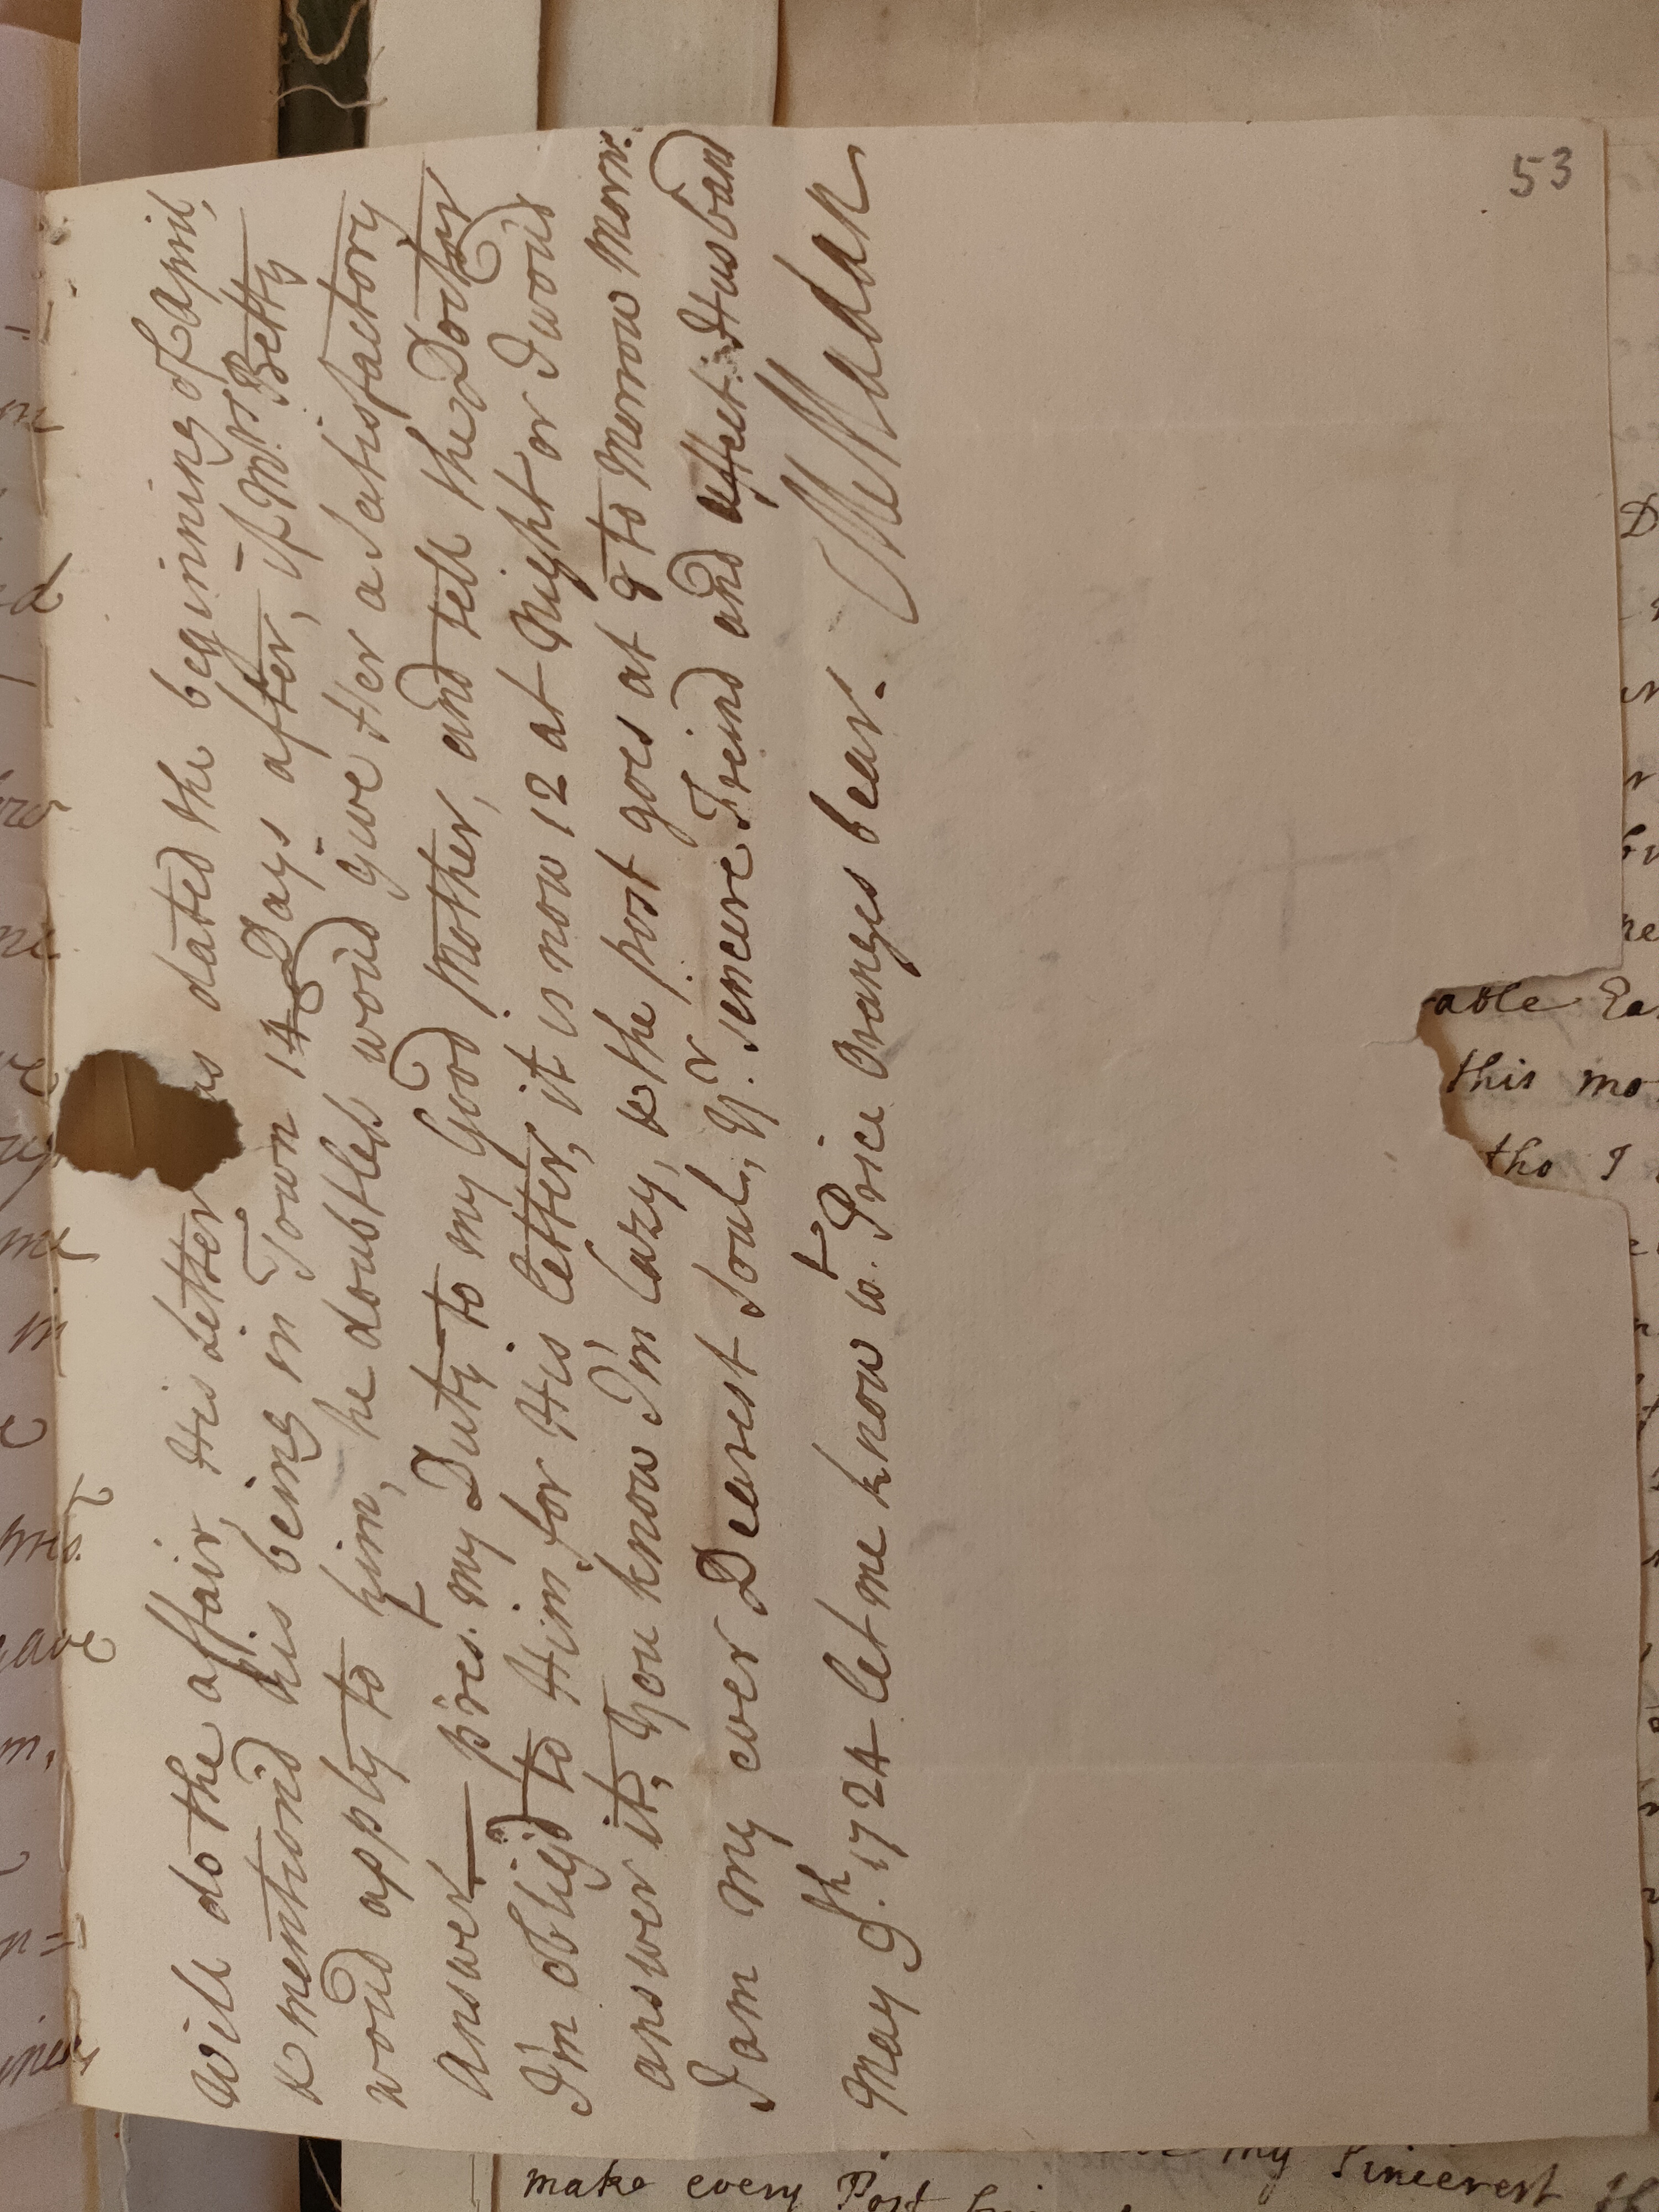 will do the affair, His Letter as dated the beginning of April,
& mention'd his being in Town 14 Days after, if Mrs Betty
wou'd apply to him, he doubtless wou'd give Her a Satisfactory
Answer — pres.t my Duty to my Good Mother, and tell the Doctor
I'm oblig'd to Him for His letter, it is now 12 at Night or I wou'd
answer it, You know I'm lazy, & the post goes at 8 to Morrow Morn:
I am my ever Dearest Soul, Yr. sincere Freind and affect: Husband
May 9th. 1724 let me know wt. Price Oranges bear. MMadan
53
make every Post
my Sincerest
able
this mo
tho I